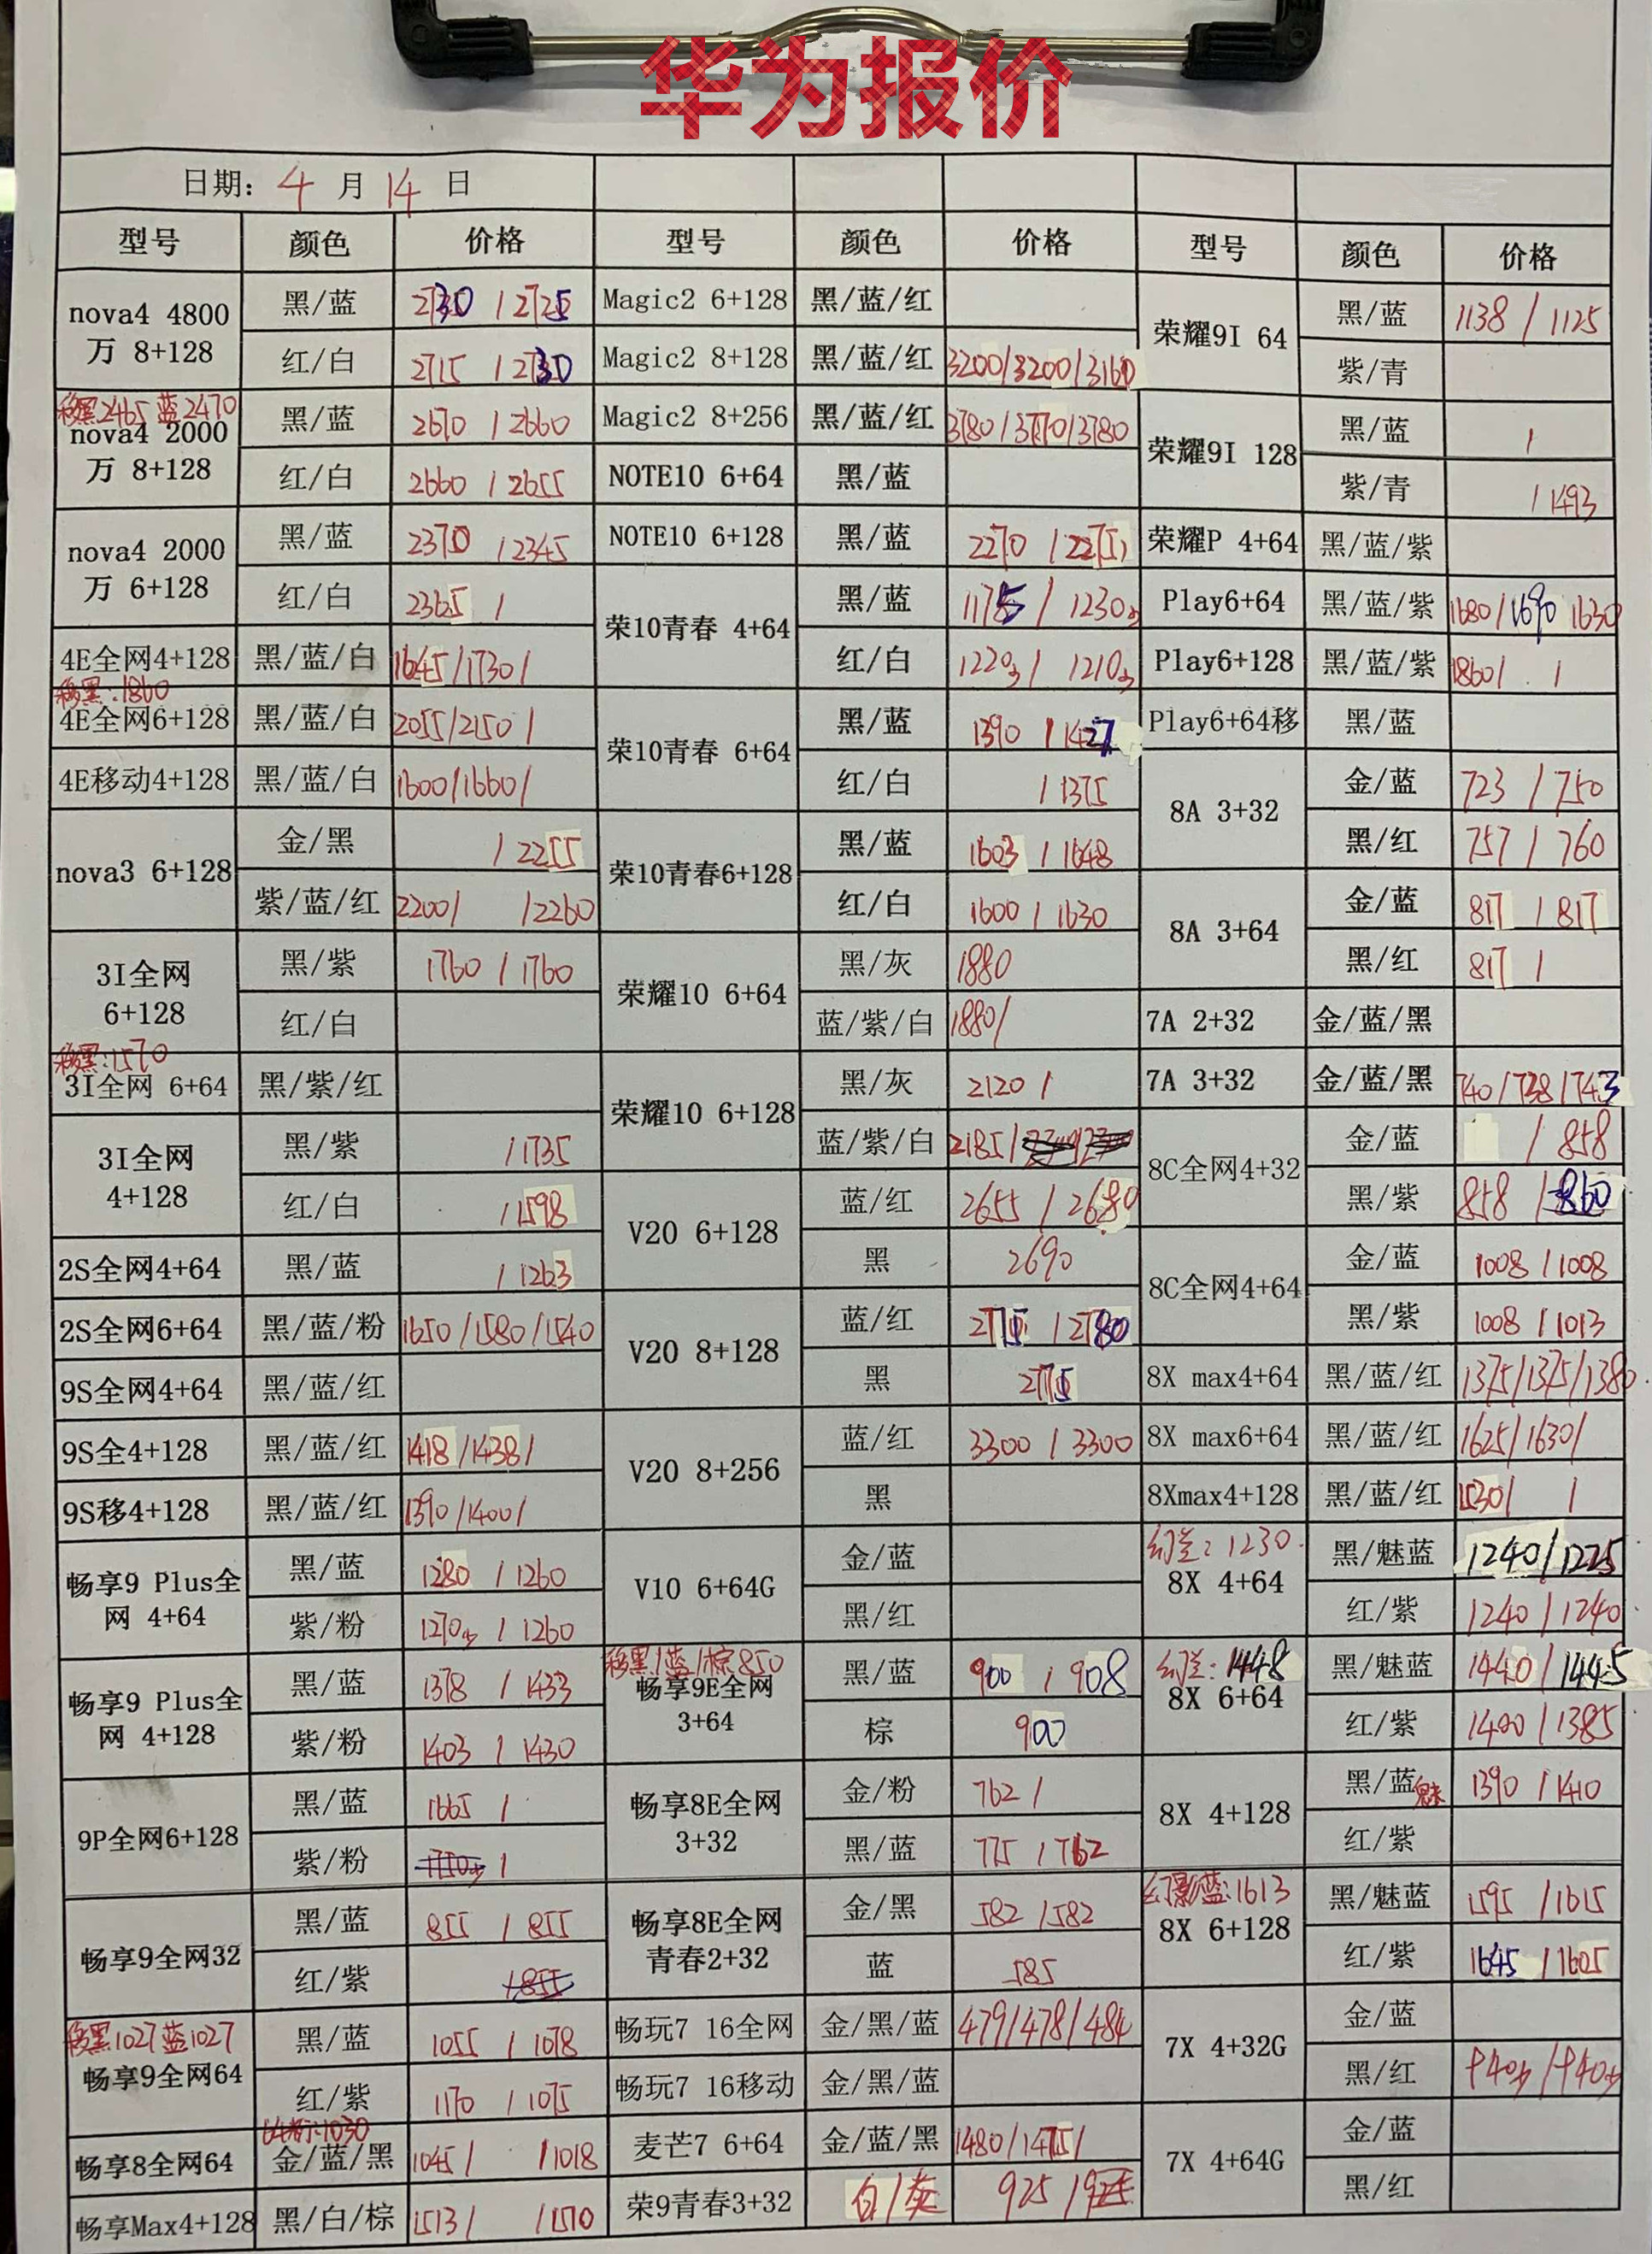 华为报价
日期: 4 月 14 日
型号 颜色 价格 型号 颜色 价格 型号 颜色 价格
nova4 4800万 8+128
黑/蓝 2730 / 2725
红/白 2715 / 2730
移黑2465 蓝2470
nova4 2000万 8+128
黑/蓝 2670 / 2660
红/白 2660 / 2655
nova4 2000万 6+128
黑/蓝 2370 / 2345
红/白 2365 /
4E全网4+128 黑/蓝/白 1645/1730/
移黑:1860
4E全网6+128 黑/蓝/白 2055/2150/
4E移动4+128 黑/蓝/白 1600/1660/
nova3 6+128
金/黑 / 2255
紫/蓝/红 2200/ /2260
3I全网 6+128
黑/紫 1760 / 1760
红/白
移黑:1570
3I全网 6+64 黑/紫/红
3I全网 4+128
黑/紫 / 1735
红/白 / 1598
2S全网4+64 黑/蓝 / 1263
2S全网6+64 黑/蓝/粉 1650/1580/1540
9S全网4+64 黑/蓝/红
9S全4+128 黑/蓝/红 1418/1438/
9S移4+128 黑/蓝/红 1390/1400/
畅享9 Plus全网 4+64
黑/蓝 1280 / 1260
紫/粉 1270 / 1260
畅享9 Plus全网 4+128
黑/蓝 1378 / 1433
紫/粉 1403 / 1430
9P全网6+128
黑/蓝 1665 /
紫/粉 /
畅享9全网32
黑/蓝 855 / 855
红/紫
移黑1027 蓝1027
畅享9全网64
黑/蓝 1055 / 1078
红/紫 1170 / 1075
畅享8全网64 金/蓝/黑 1045/ /1018
畅享Max4+128 黑/白/棕 1513/ /1570
Magic2 6+128 黑/蓝/红
Magic2 8+128 黑/蓝/红 3200/3200/3160
Magic2 8+256 黑/蓝/红 3780/3770/3780
NOTE10 6+64 黑/蓝
NOTE10 6+128 黑/蓝 2270 / 2275
荣10青春 4+64
黑/蓝 1175 / 1230
红/白 1220 / 1210
荣10青春 6+64
黑/蓝 1390 / 1427
红/白 / 1375
荣10青春6+128
黑/蓝 1603 / 1648
红/白 1600 / 1630
荣耀10 6+64
黑/灰 1880
蓝/紫/白 1880/
荣耀10 6+128
黑/灰 2120 /
蓝/紫/白 2185/
V20 6+128
蓝/红 2655 / 2680
黑 2690
V20 8+128
蓝/红 2775 / 2780
黑 2775
V20 8+256
蓝/红 3300 / 3300
黑
V10 6+64G
金/蓝
黑/红
移黑/蓝/棕850
畅享9E全网 3+64
黑/蓝 900 / 908
棕 900
畅享8E全网 3+32
金/粉 762 /
黑/蓝 775 / 762
畅享8E全网 青春2+32
金/黑 582 / 582
蓝 585
畅玩7 16全网 金/黑/蓝 479/478/484
畅玩7 16移动 金/黑/蓝
麦芒7 6+64 金/蓝/黑 1480/1475/
荣9青春3+32 白/ 925 /
荣耀9I 64
黑/蓝 1138 / 1125
紫/青
荣耀9I 128
黑/蓝 /
紫/青 / 1493
荣耀P 4+64 黑/蓝/紫
Play6+64 黑/蓝/紫 1680/1690 1630
Play6+128 黑/蓝/紫 1860/ /
Play6+64移 黑/蓝
8A 3+32
金/蓝 723 / 750
黑/红 757 / 760
8A 3+64
金/蓝 817 / 817
黑/红 817 /
7A 2+32 金/蓝/黑
7A 3+32 金/蓝/黑 740/738/743
8C全网4+32
金/蓝 / 858
黑/紫 858 / 860
8C全网4+64
金/蓝 1008 / 1008
黑/紫 1008 / 1013
8X max4+64 黑/蓝/红 1375/1375/1380
8X max6+64 黑/蓝/红 1625/1630/
8Xmax4+128 黑/蓝/红 1530/ /
幻兰: 1230
8X 4+64
黑/魅蓝 1240/1225
红/紫 1240 / 1240
幻兰: 1448
8X 6+64
黑/魅蓝 1440/1445
红/紫 1400 / 1385
8X 4+128
黑/蓝 魅 1390 / 1410
红/紫
幻影蓝:1613
8X 6+128
黑/魅蓝 1595 / 1615
红/紫 1645 / 1605
7X 4+32G
金/蓝
黑/红
7X 4+64G
金/蓝
黑/红